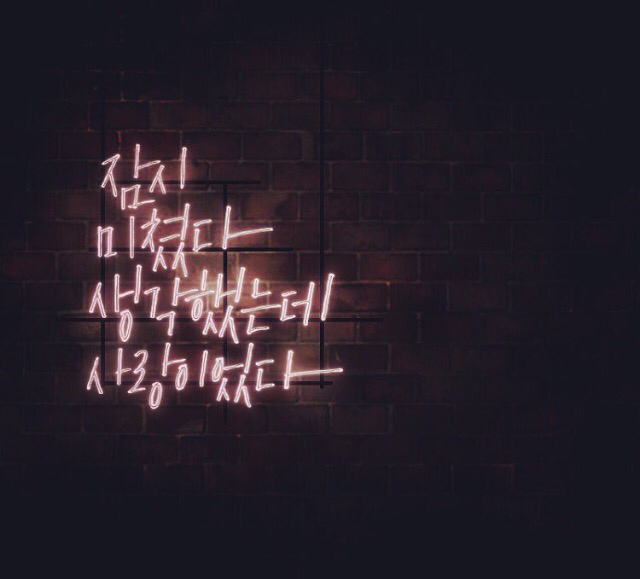 잠시
미쳤다
생각했는데
사랑이었다